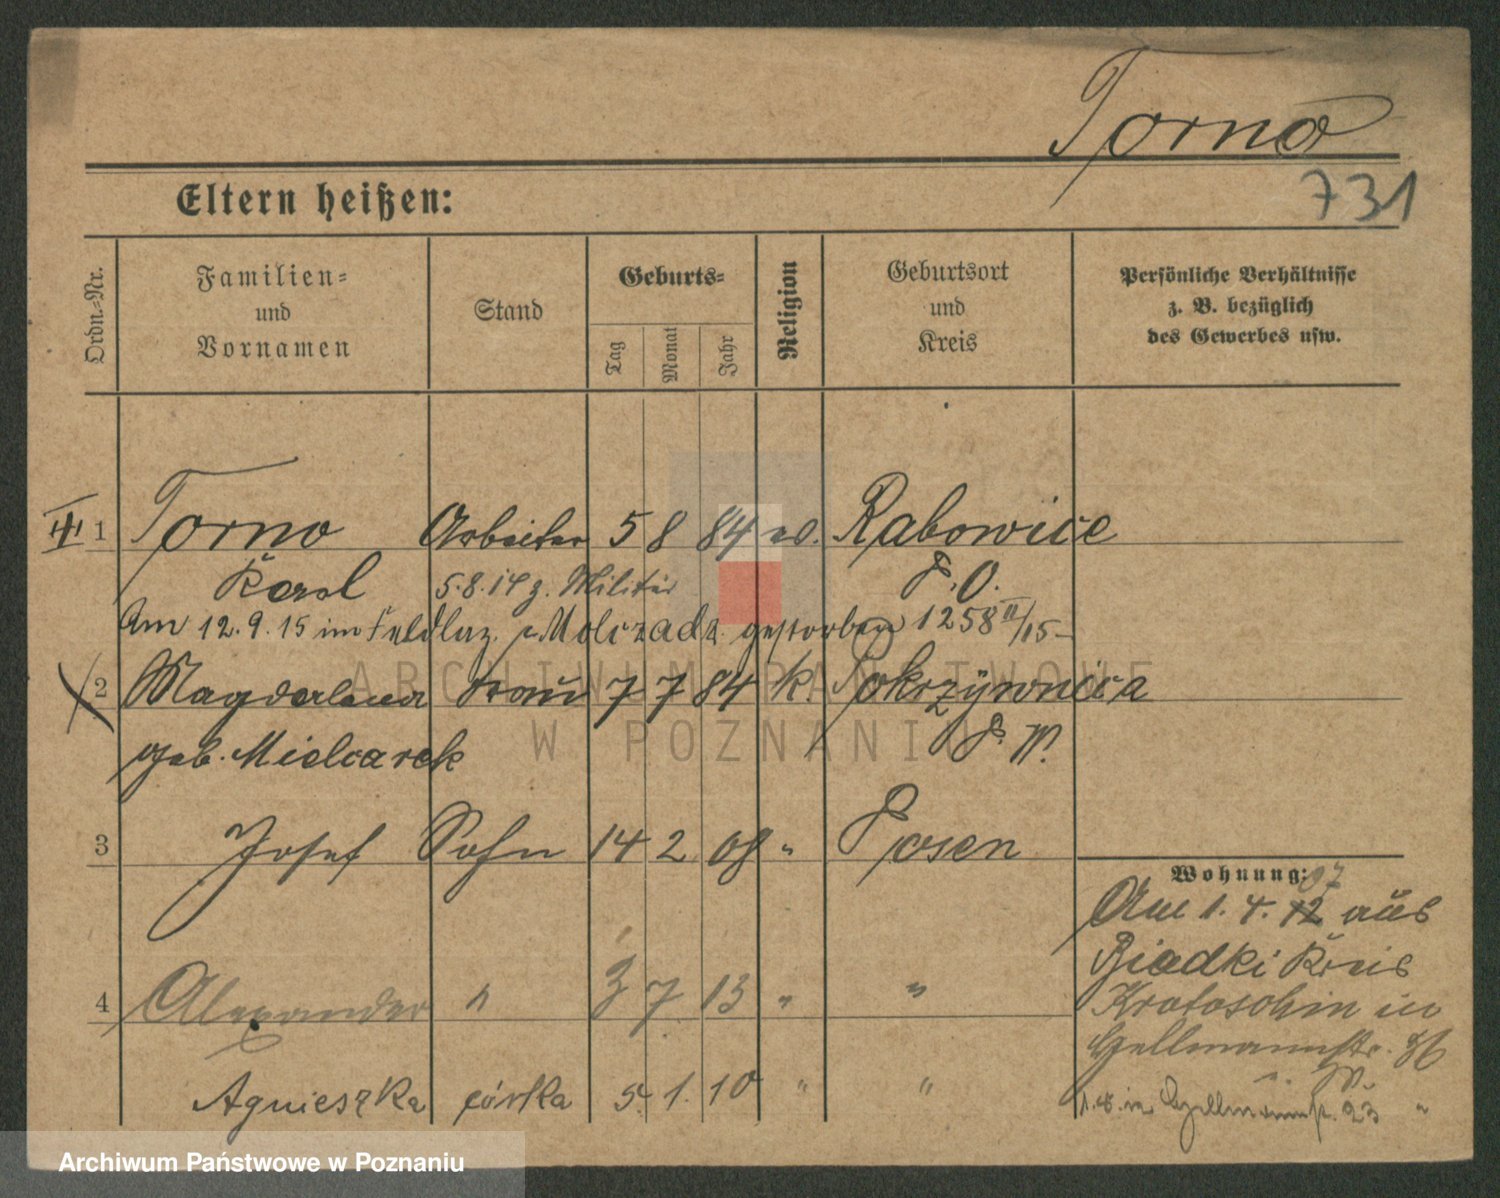 Torno
731
Eltern heißen:
Ordn.-Nr.
Familien-
und
Vornamen
Stand
Geburts-
Tag
Monat
Jahr
Religion
Geburtsort
und
Kreis
Persönliche Verhältnisse
z. B. bezüglich
des Gewerbes usw.
1 Torno Arbeiter 5 8 84 Rabowice
Karol 5.8.14 z. Militär P. O.
Am 12.9.15 im Feldlaz. Molczadz gestorben 1258 III/15
2 Magdalena Frau 7 7 84 k. Pokrzywnica
geb. Mielcarek P. W.
3 Josef Sohn 14 2 08 " Posen
Wohnung:
07
Am 1.4.12 aus
Biadki Kreis
4 Alexander " 3 7 13 " "
Krotoschin in
Agnieszka córka 5 1. 10 " "
ARCHIWUM PAŃSTWOWE
W POZNANIU
Archiwum Państwowe w Poznaniu